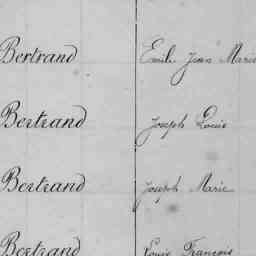 Bertrand Emile Jean Marie
Bertrand Joseph Louis
Bertrand Joseph Marie
Bertrand Louis François